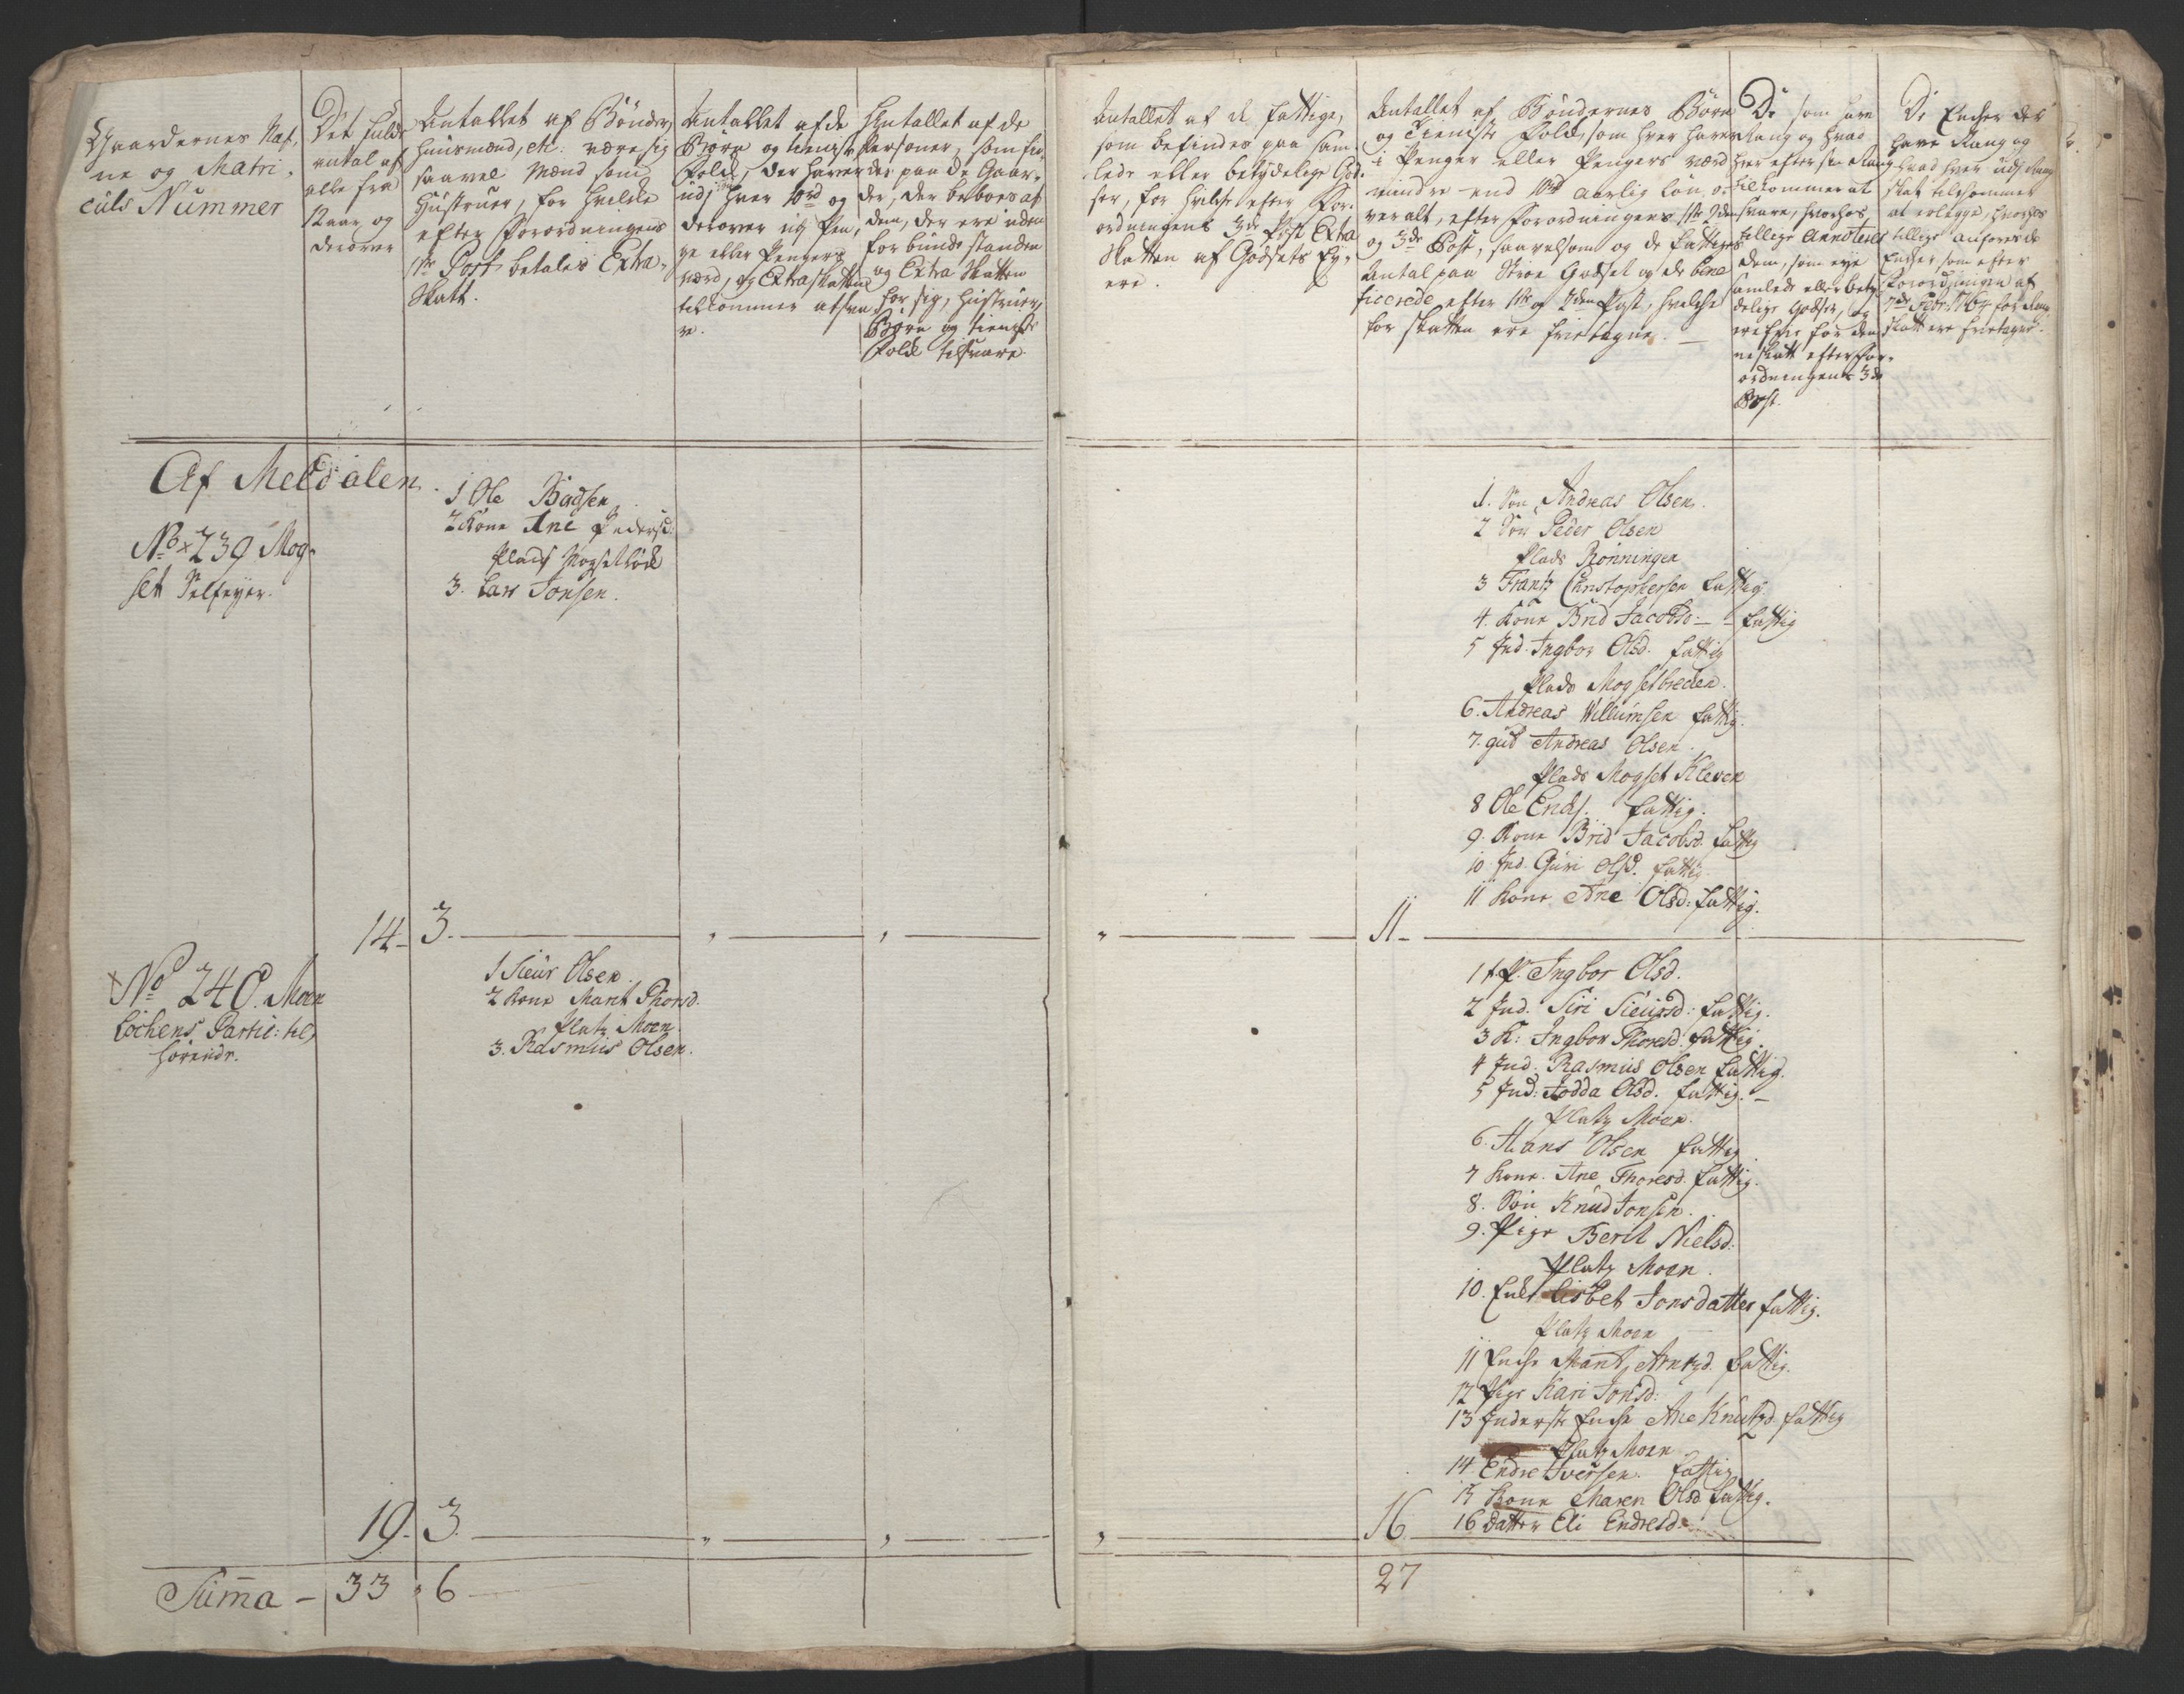 Gaardernes Nav,
ne og Matri,
culs Nummer
Det fulde
antal af
alle fra
12 aar og
derover
Antallet af Bønder,
huusmænd, etc: være sig
saavel Mænd som
Hustruer, for hvilke
efter Forordningens
1ste Post betales Extra,
Skatt.
Antallet af de
Børn og tieniste
Folk, der haver
udj hver 10rd og
derover udj Pen,
ge eller Pengers
værd, og Extraskatten
tilkommer at sva,
re.
Antallet af de
Personer, som sid,
der paa de Gaar,
der, der beboes af
dem, der ere uden
for bunde standen
og Extra Skatten
for sig, Hustruer,
Børn og tieniste
Folk tilsvare.
Antallet af de fattige,
som befindes paa sam,
lede eller betydelige God,
ser, for hvilke efter For,
ordningens 3de Post Extra
Skatten af Godsets Ey,
ere.
Antallet af Bøndernes Børn
og Tieniste Folk, som hver haver
i Penger eller Pengers værd
mindre end 10rd aarlig Løn, o,
ver alt, efter Forordningens 1ste 2den
og 3de Post, saavelsom og de fattiges
Antal paa Strøe Godset og de bene
ficerede efter 1ste og 2den Post, hvilke
for skatten ere frietagne.
De som have
Rang og hvad
hver efter sin Rang
tilkommer at
svare, hvorhos
tillige Annoteres
dem, som eye
samlede eller bety,
delige Godser, og
ere frie for den,
ne skatt efter For,
ordningens 3de
Post.
De Encker der
have Rang og
hvad hver udj Rang
skat tilkommer
at erlægge, hvorhos
tillige anføres de
Encker som efter
Forordningen af
7de Febr. 1764 for Rang
skatt ere frietagne.
Af Meldalen
No 239 Mog,
set Selfeyer.
1 Ole Badsen
2 Kone Ane Pedersd:
Plads Mogset
3. Lars Jonsen.
1. Søn Andreas Olsen.
2 Søn Peder Olsen
Plads Rønningen
3 Frantz Christophersen fattig
4. Kone Brid Jacobsd: — fattig
5 Ind. Ingbor Olsd. fattig
Plads Mogsetbreden.
6. Andreas Willumsen fattig.
7. gud Andreas Olsen.
Plads Mogset Kleven
8 Ole Ends. fattig.
9. Kone Brid Jacobsd. fattig
10 Ind. Guri Olsd. fattig.
11 Kone Ane Olsd: fattig.
14 3. 11
No 240. Moen
Løchens Partic: til,
hørende.
1 Sieur Olsen.
2 Kone Marit Thorsd.
Platz Moen.
3. Rasmus Olsen.
1 P. Ingbor Olsd.
2 Ind. Siri Sieursd: fattig.
3 K: Ingbor Thoresd. fattig.
4 Ind. Rasmus Olsen fattig.
5 Ind: Jodda Olsd. fattig.
Platz Moen.
6. Hans Olsen fattig.
7 Kone. Ane Thoresd. fattig.
8. Søn Knud Jonsen.
9. Pige Berit Nielsd.
Platz Moen.
10. Enke Lisbet Jonsdatter fattig.
Platz Moen
11 Encke Marit Arntzd. fattig.
12 Pige Kari Jonsd:
13 Inderste Encke Ane Knutzd. fattig
Platz Moen
14 Endre Iversen. fattig
15 Kone Maren Olsd. fattig.
16 Datter Eli Endresd.
19. 3. 16
Suma - 33 6 27